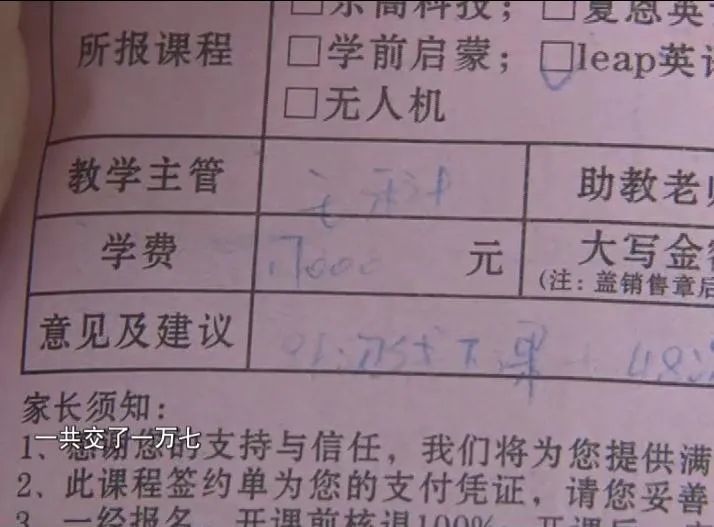 乐高科技；□夏恩英
所报课程
□学前启蒙；□leap英语
□无人机
教学主管
助教老师
学费 17000 元 大写金额
(注：盖销售章后
意见及建议
家长须知：
一共交了一万七
1、感谢您的支持与信任，我们将为您提供满
2、此课程签约单为您的支付凭证，请您妥善
3、一经报名，开课前核退100%，开课后